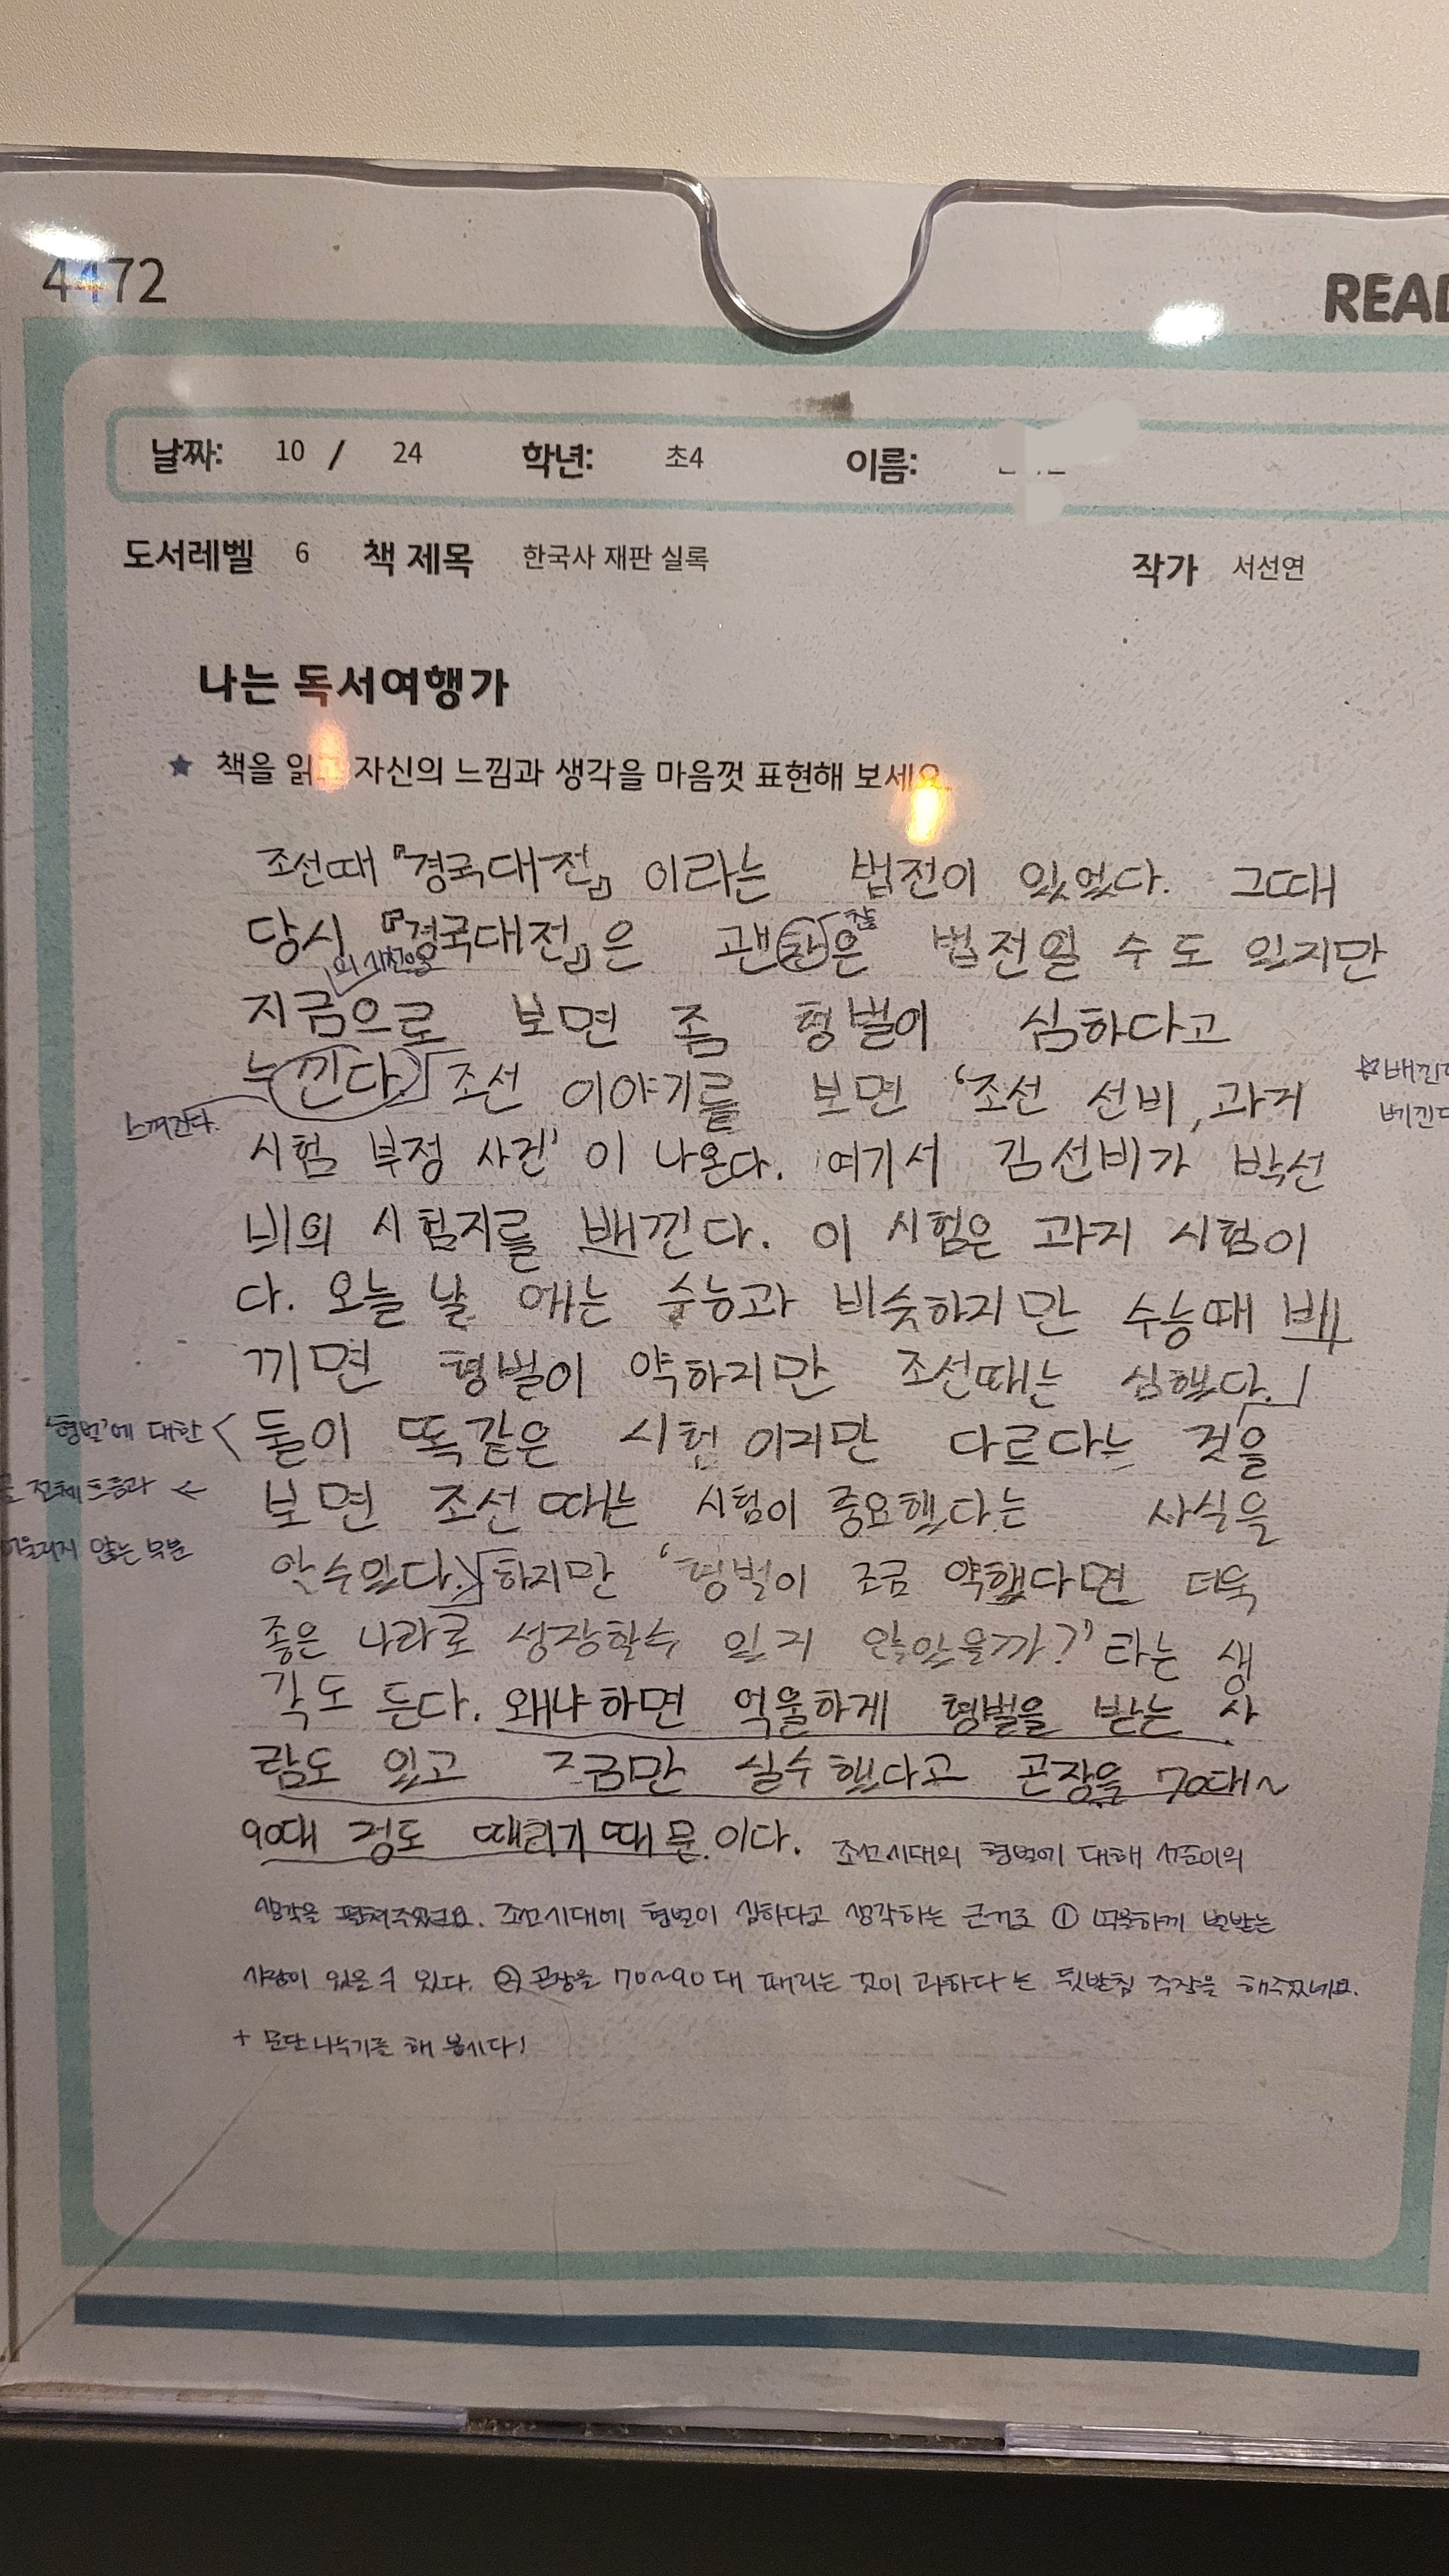 4472
READ
날짜: 10 / 24 학년: 초4 이름:
도서레벨 6 책 제목 한국사 재판 실록 작가 서선연
나는 독서여행가
★ 책을 읽 자신의 느낌과 생각을 마음껏 표현해 보세요
조선때 『경국대전』 이라는 법전이 있었다. 그때
찮
당시 『경국대전』은 괜찬은 법전일 수도 있지만
의 시선으로
지금으로 보면 좀 형벌이 심하다고
누낀다. 조선 이야기를 보면 ‘조선 선비, 과거
느껴진다.
시험 부정 사건’ 이 나온다. 여기서 김선비가 박선
비의 시험지를 빼낀다. 이 시험은 과거 시험이
다. 오늘 날 에는 수능과 비슷하지만 수능때 베
끼면 형벌이 약하지만 조선때는 심했다.
‘형벌’에 대한
둘이 똑같은 시험 이지만 다르다는 것을
글 전체 흐름과
보면 조선 때는 시험이 중요했다는 사실을
않는 부분
알수있다. 하지만 ‘형벌이 조금 약했다면 더욱
좋은 나라로 성장할수 있지 않았을까?’ 라는 생
각도 든다. 왜냐하면 억울하게 형벌을 받는 사
람도 있고 조금만 실수했다고 곤장을 70대~
90대 정도 때리기 때문이다. 조선시대의 형벌에 대해 서준이의
생각을 펼쳐주었네요. 조선시대에 형벌이 심하다고 생각하는 근거로 ① 억울하게 벌받는
사람이 있을 수 있다. ② 곤장을 70~90대 때리는 것이 과하다 는 뒷받침 주장을 해주었네요.
+ 문단 나누기를 해 봅시다!